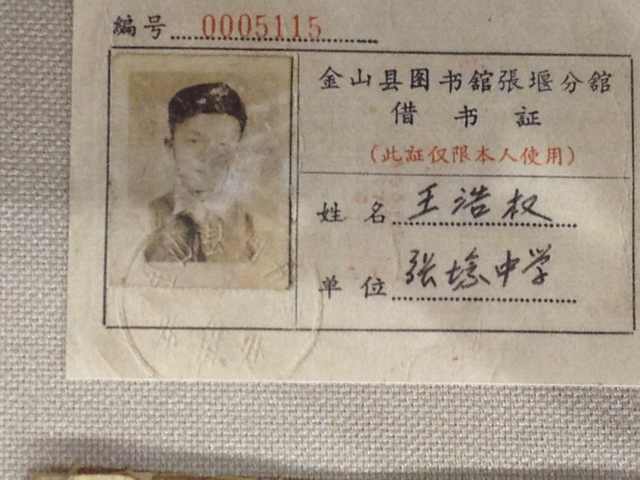 编号 0005115
金山县图书舘張堰分舘
借书証
(此証仅限本人使用)
姓名 王浩权
单位 张堰中学